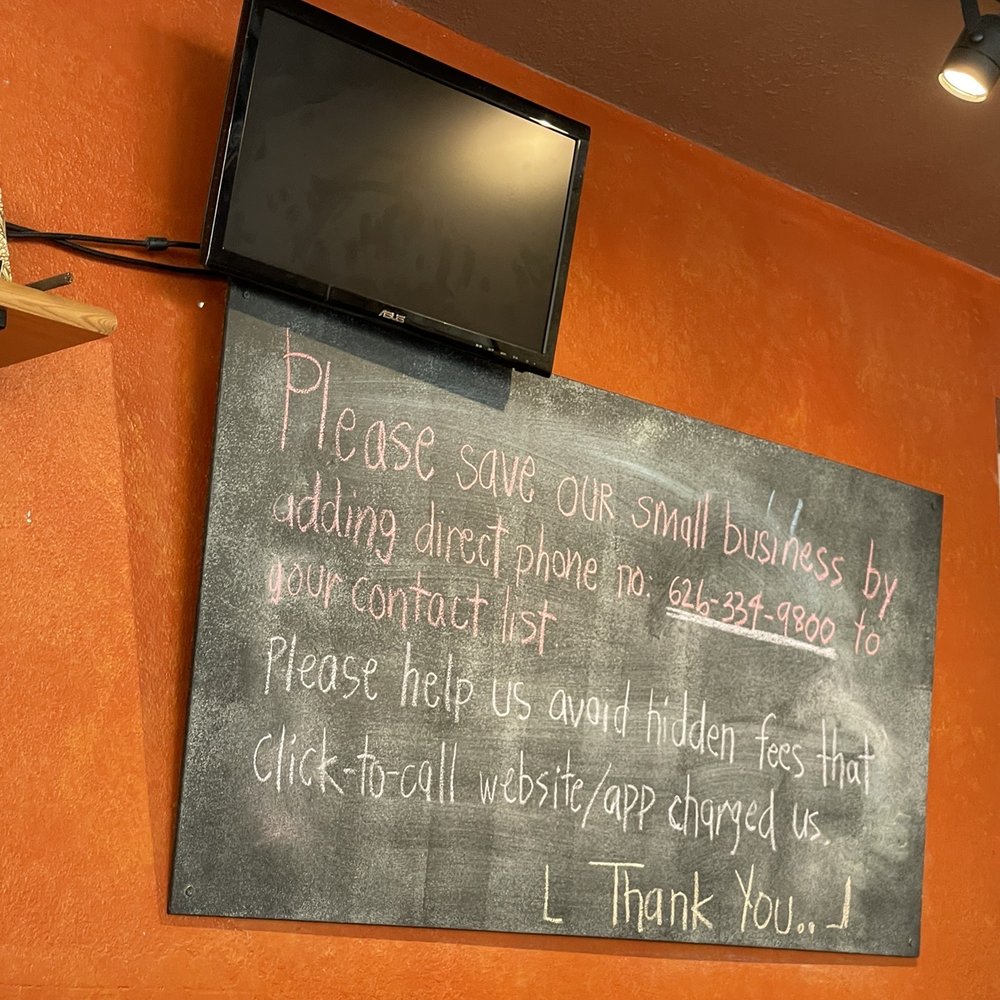 ASUS
Please save our small business by
adding direct phone no: 626-334-9800 to
your contact list.
Please help us avoid hidden fees that
click-to-call website/app charged us.
Thank You..